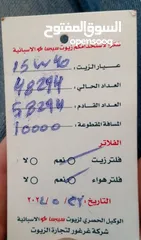 السوق المفتوح
شكراً لاستخدامكم زيوت الاسبانية
عيار الزيت: 15W40
العداد الحالي: 48294
العداد القادم: 58294
المسافة المقطوعة: 10000
الفلاتر
فلتر زيت نعم لا
فلتر هواء نعم لا
التاريخ:
الوكيل الحصري لزيوت الاسبانية
شركة غرغور لتجارة الزيوت